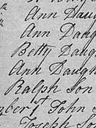 Ann Daug
Ann Daug
Betty Daug
Ann Daugh
Ralph Son
John
Joseph Son